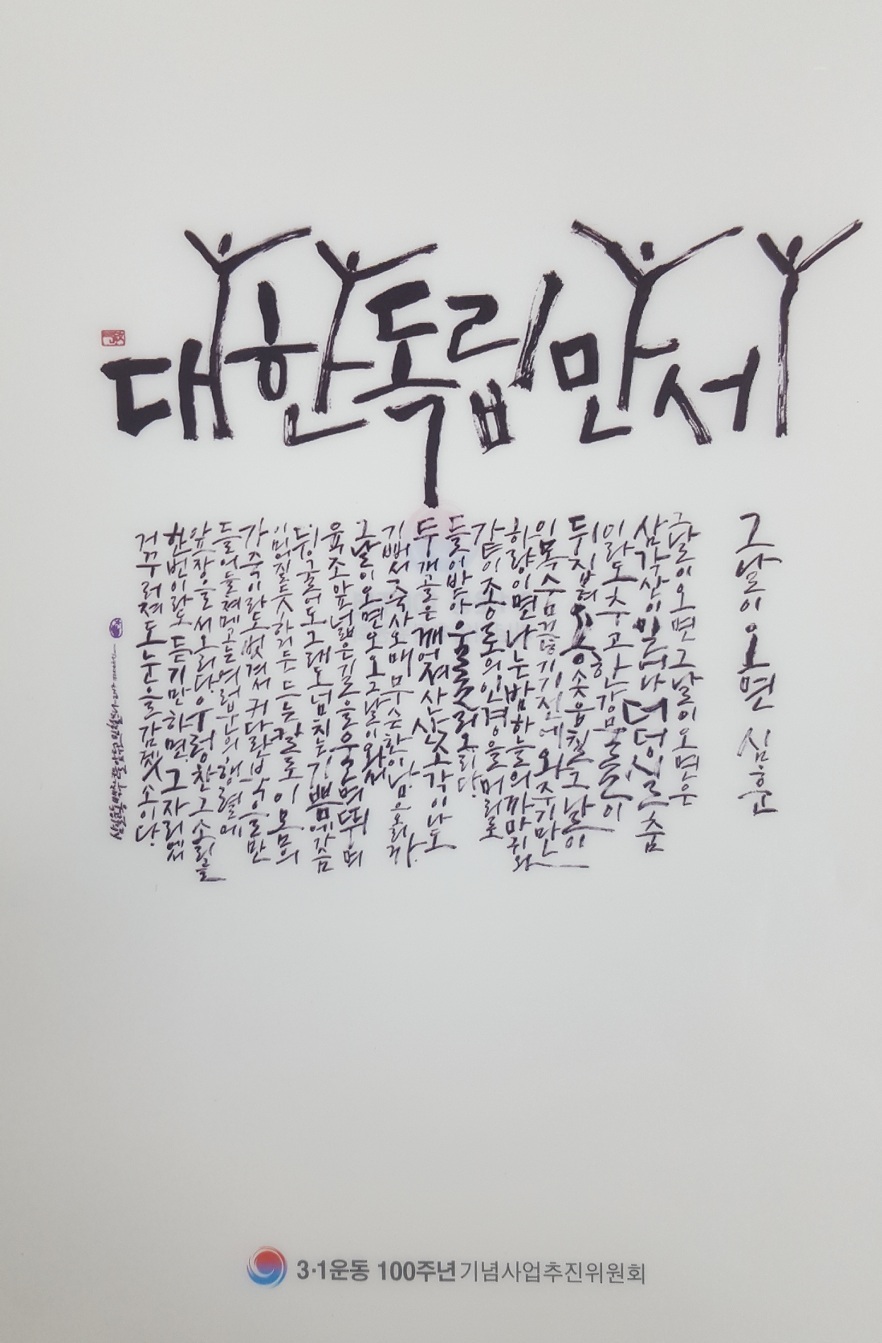 대한독립만세
그날이 오면 심훈
그날이 오면 그날이 오면은
삼각산이 일어나 더덩실 춤
이라도 추고 한강물이
뒤집혀 용솟음칠 그날이
이 목숨 끊기기 전에 와주기만
하량이면 나는 밤하늘의 까마귀와
같이 종로의 인경을 머리로
들이받아 울리오리다.
두개골은 깨어져 산산조각이나도
기뻐서 죽사오매 무슨 한이 남으오리까.
그날이 오면 오오 그날이 와서
육조앞 넓은 길을 울며 뛰며
뒹굴어도 그래도 넘치는 기쁨에 가슴
이 미어질듯 하거든 드는 칼로 이몸의
가죽이라도 벗겨서 커다란 북을 만
들어 들쳐메고는 여럿분의 행렬에
앞장을 서오리다. 우렁찬 그 소리를
한번이라도 듣기만 하면 그 자리에
거꾸러져도 눈을 감겠소이다.
3·1운동 100주년기념사업추진위원회